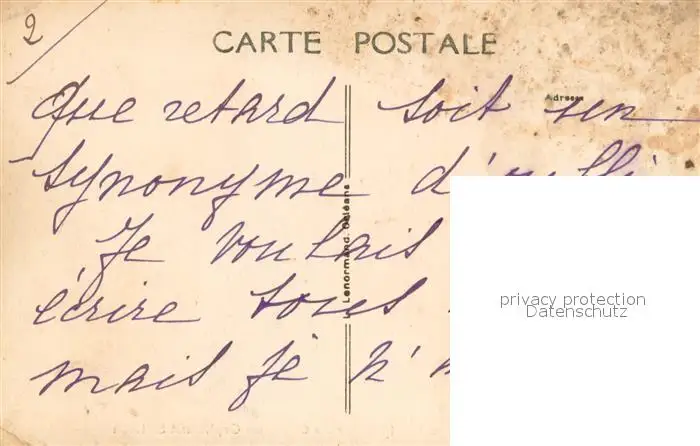 2
CARTE POSTALE
Adresse
que retard soit un
synonyme d'oubli
Je voulais
écrire tous
mais je n'
Lenormand. Orléans
privacy protection
Datenschutz